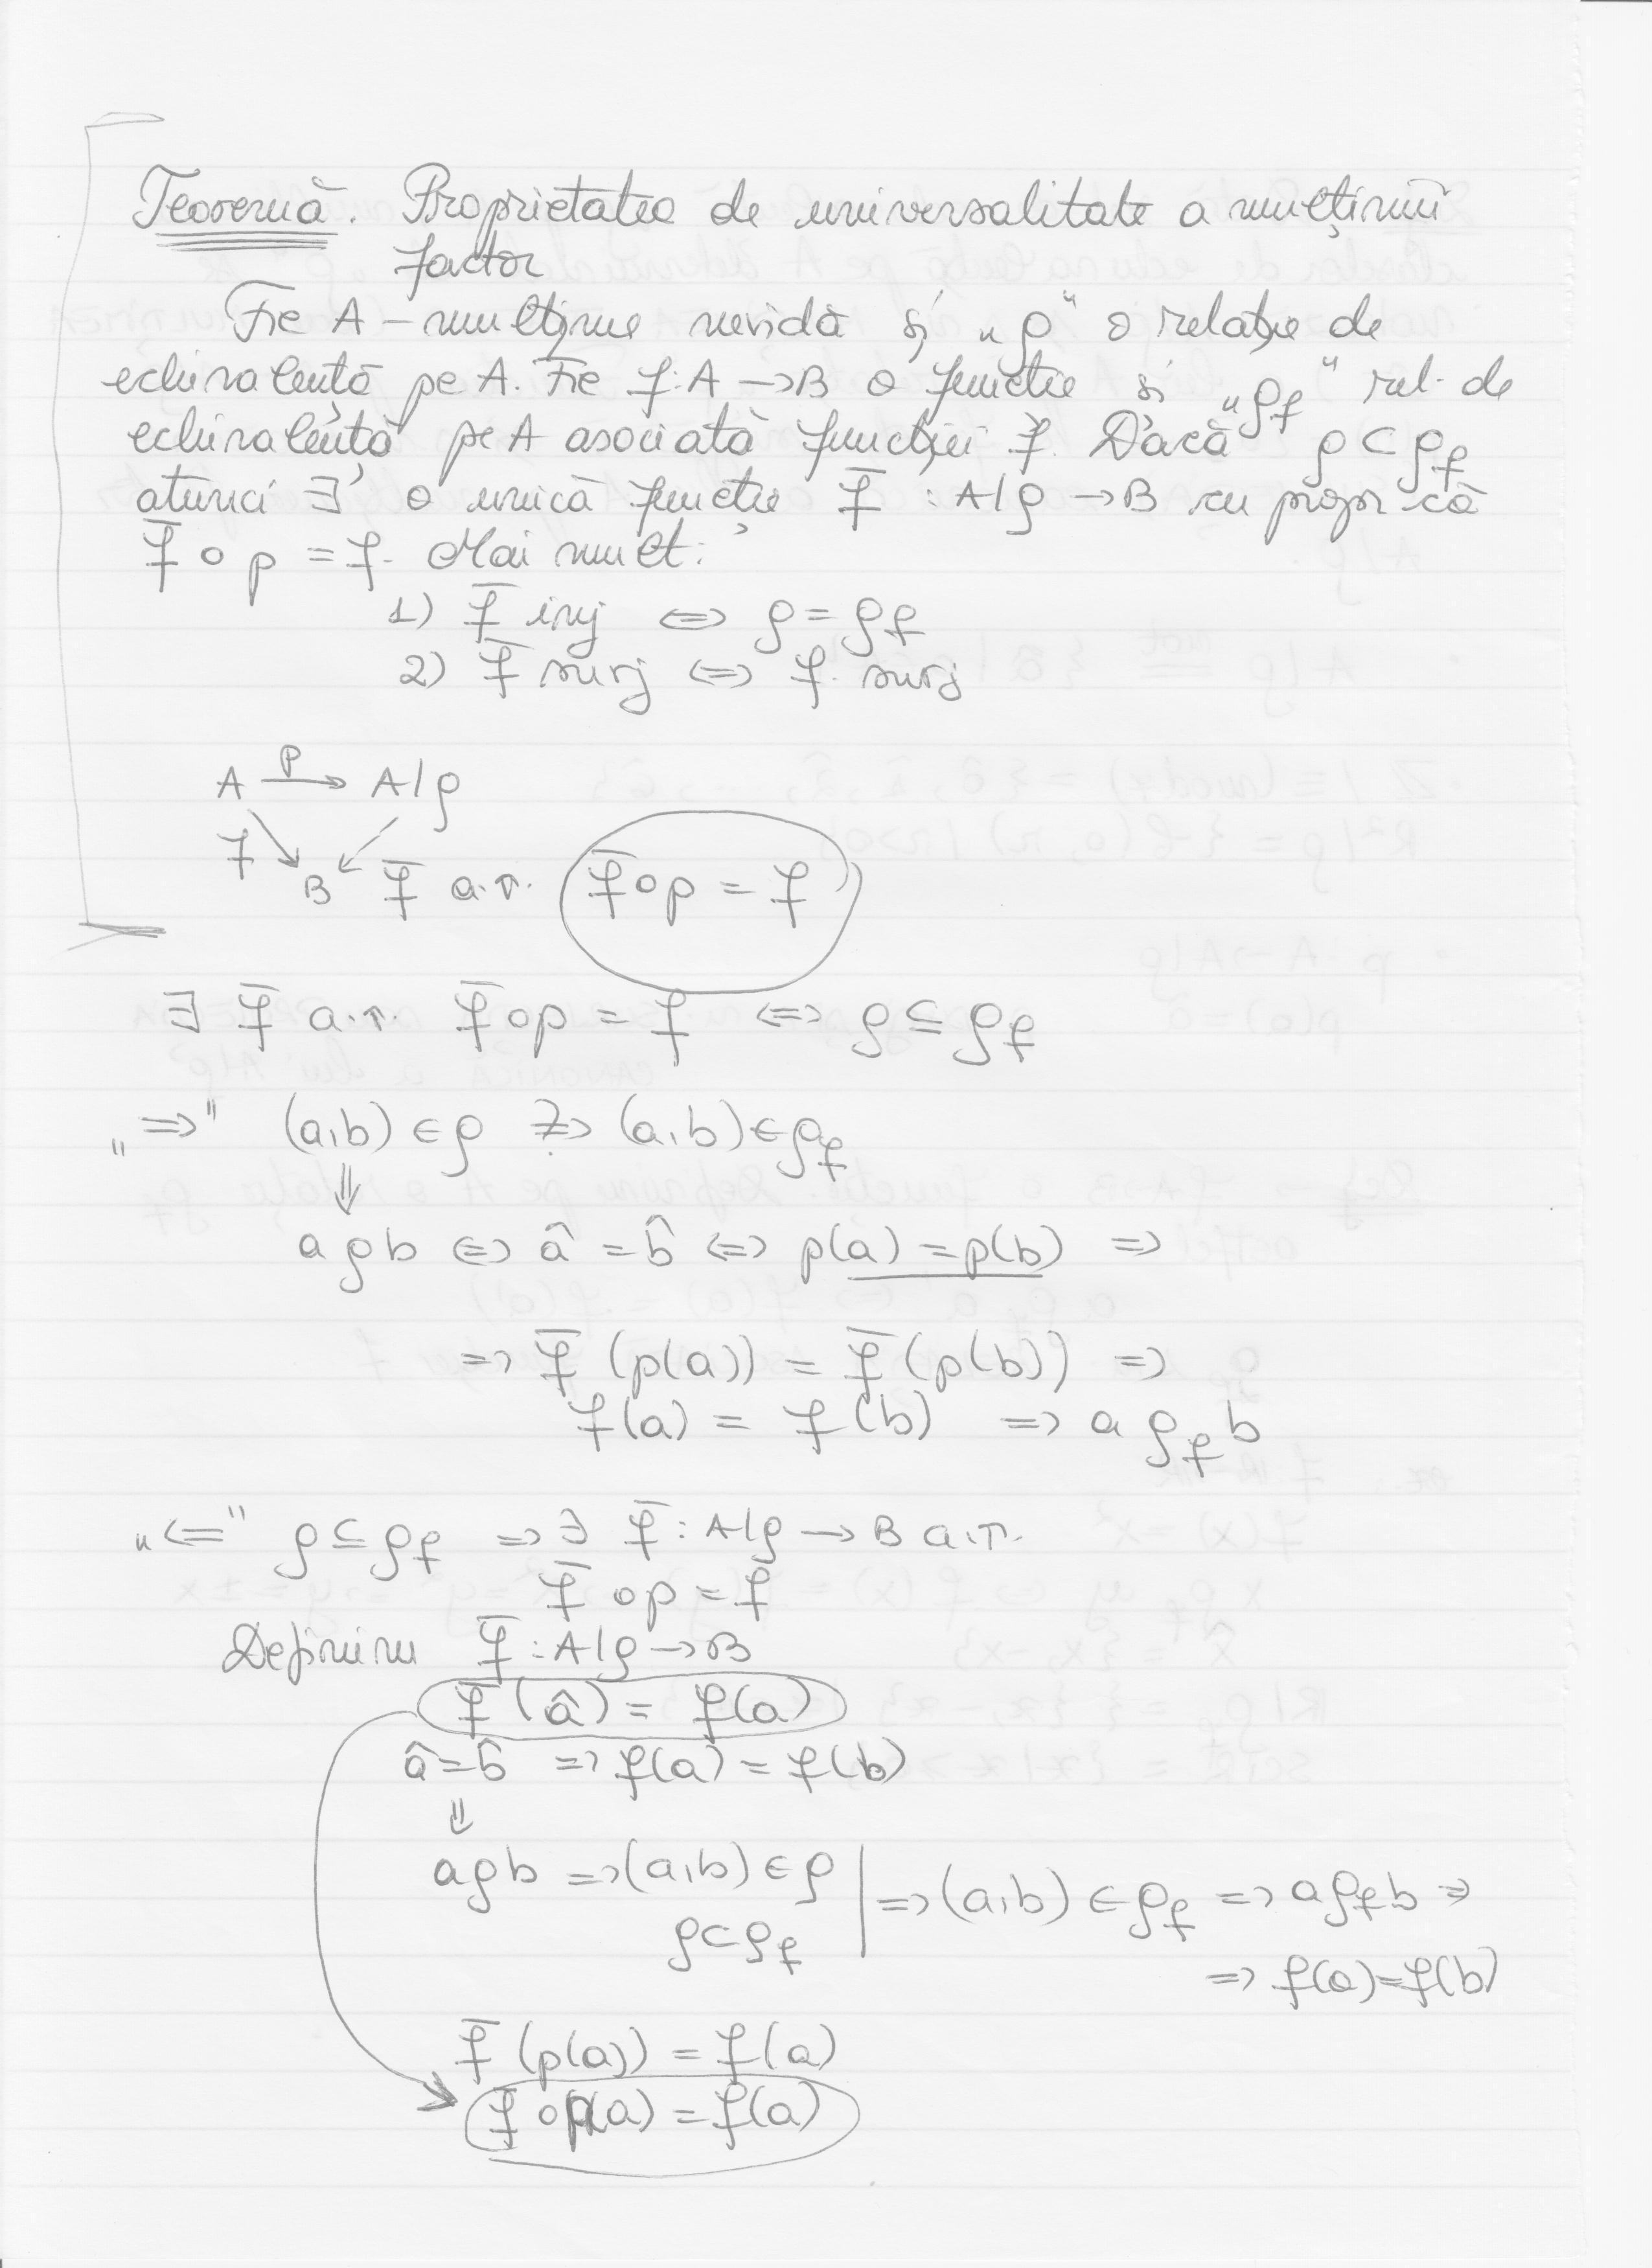 Teoremă. Proprietatea de universalitate a mulțimii
factor
Fie A – mulțime nevidă și „ρ" o relație de
echivalență pe A. Fie f: A → B o funcție si „ρf" rel. de
echivalență pe A asociată funcției f. Dacă ρ ⊂ ρf
atunci ∃ o unică funcție f̄ : A/ρ → B cu propr că
f̄ ∘ p = f. Mai mult:
1) f̄ inj ⇔ ρ = ρf
2) f̄ surj ⇔ f. surj
A p→ A/ρ
f B f̄ a.î. f̄∘p = f
∃ f̄ a.î. f̄∘p = f ⇔ ρ ⊆ ρf
„⇒" (a,b) ∈ ρ ?⇒ (a,b) ∈ ρf
⇓
aρb ⇔ â = b̂ ⇔ p(a) = p(b) ⇒
⇒ f̄ (p(a)) = f̄ (p(b)) ⇒
f(a) = f(b) ⇒ a ρf b
„⇐" ρ ⊆ ρf ⇒ ∃ f̄ : A/ρ → B a.î.
f̄ ∘p = f
Definim f̄ : A/ρ → B
f̄ (â) = f(a)
â = b̂ ⇒ f(a) = f(b)
⇓
aρb ⇒ (a,b) ∈ ρ | ⇒ (a,b) ∈ ρf ⇒ aρf b ⇒
ρ ⊂ ρf
⇒ f(a) = f(b)
f̄ (p(a)) = f(a)
f̄ ∘p(a) = f(a)